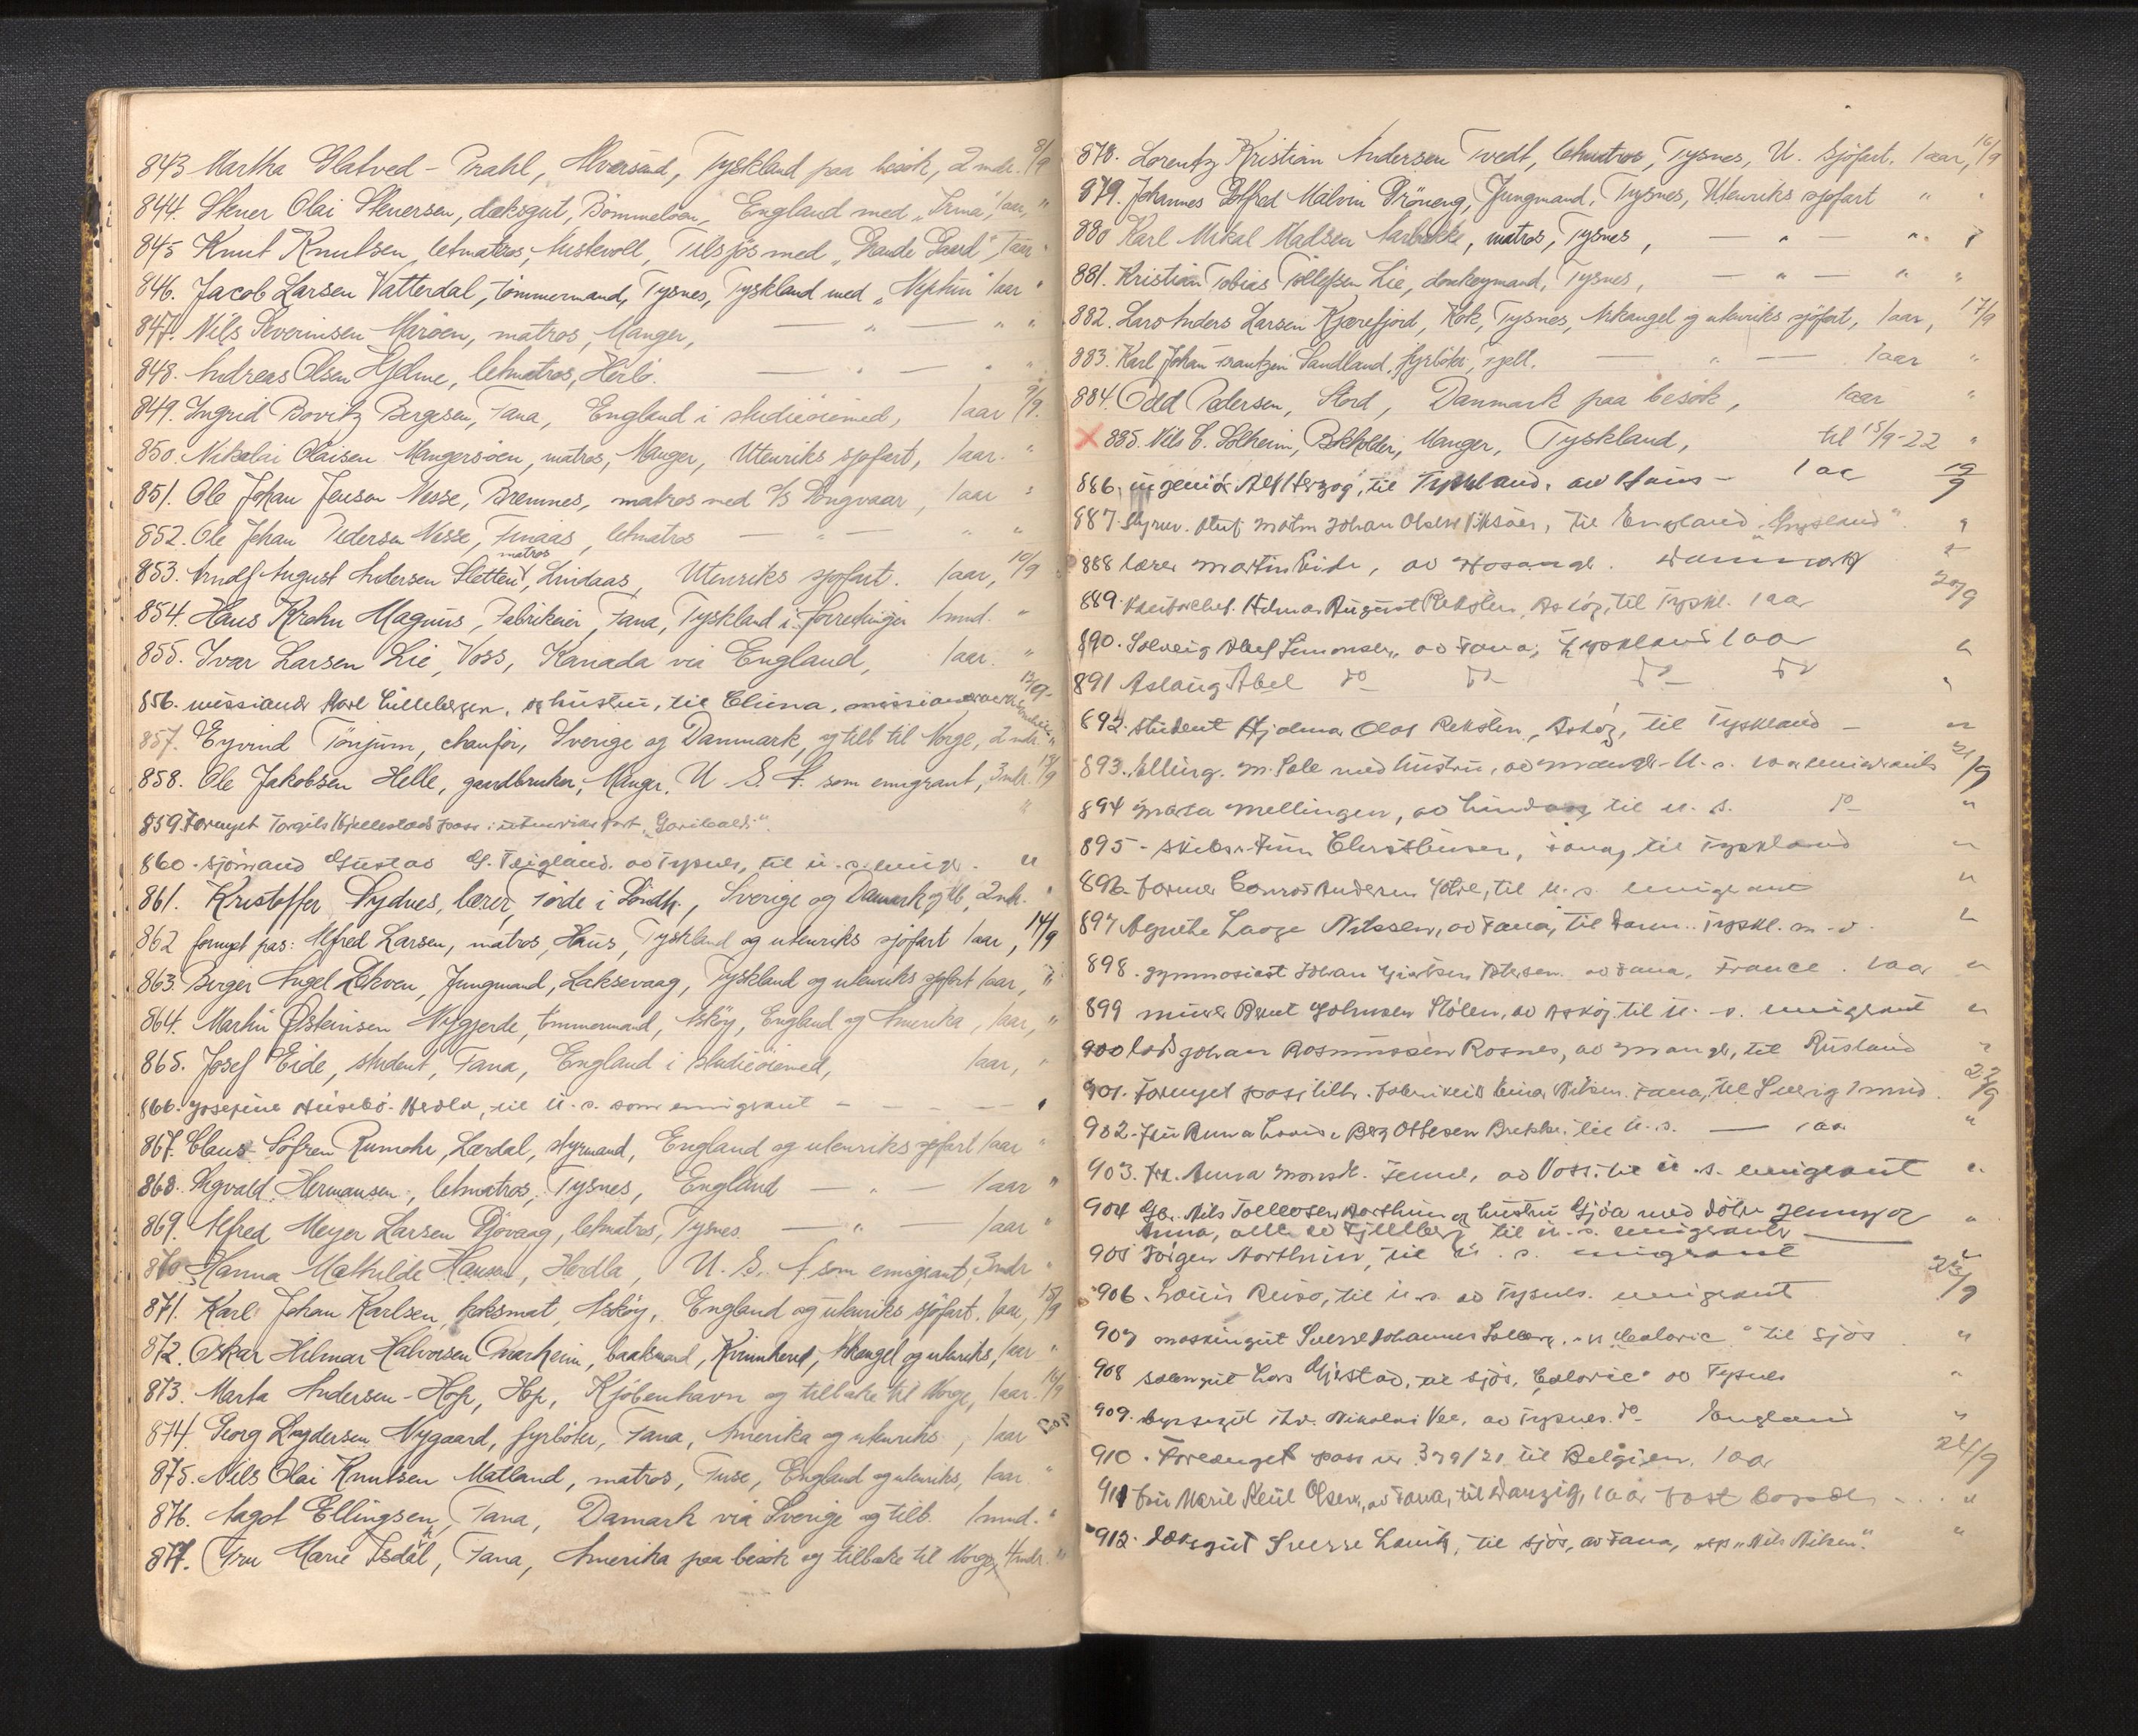 843 Martha Glatved-Prahl, Alversund, Tyskland paa besök, 2 mdr. 8/9
844. Stener Olai Stenersen, dæksgut, Bömmeloen, England med "Irma", 1 aar, "
845 Knut Knutsen, letmatros, Austevoll, Tilsjös med " Gaard", 1 aar "
846. Jacob Larsen Vatterdal, tömmermand, Tysnes, Tyskland med "Neptun" 1 aar "
847. Nils Severinsen Maröen, matros, Manger, — " — " "
848. Andreas Olsen Hjelme, letmatros, Herlö. — " — " "
849. Ingrid Bovitz Bergesen, Fana, England i studieöiemed, 1 aar 9/9.
850. Nikolai Olaisen Mangersöen, matros, Manger, Utenriks sjøfart, 1 aar. "
851. Ole Johan Jenson Vesse, Bremnes, matros med S/S Longvaar, 1 aar "
852. Ole Johan Pedersen Vesse, Finaas, letmatros — " — " "
matros
853. Arnolf August Andersen Sletten, Lindaas, Utenriks sjøfart. 1 aar, 10/9
854. Hans Krohn Magnus, Fabrikeier, Fana, Tyskland i forretninger 1 mnd. "
855. Ivar Larsen Lie, Voss, Kanada via England, 1 aar. "
856. missionær Karl Lilleberge, og hustru, til China, 12/9-
857. Eyvind Tönjum, chauför, Sverige og Danmark og tilb til Norge, 2 mdr. "
858. Ole Jakobsen Helle, gaardbruker, Manger, U. S. A. som emigrant, 3 mdr. 13/9
859. Fornyet Torgils Kjellestads pass i utenriks fart "Garibaldi". "
860. sjömand Gustav G. Teigland. av Tysnes, til U. s. emigr. "
861. Kristoffer Sydnes, lærer, Förde i Söndh., Sverige og Danmark og tilb, 2 mdr. "
862 fornyet pas: Alfred Larsen, matros, Haus, Tyskland og utenriks sjøfart 1 aar, 14/9
863. Birger Angel Løkven, Jungmand, Laksevaag, Tyskland og utenriks sjøfart 1 aar, "
864. Martin Østeinsen Nygjerde, tömmermand, Askøy, England og Amerika, 1 aar, "
865. Josef Eide, student, Fana, England i studieöiemed, 1 aar, "
866. Josefine Husebö. Herdla, til U. s. som emigrant - - - - "
867. Claus Söfren Rumohr, Lærdal, styrmand, England og utenriks sjøfart 1 aar "
868. Sigvald Hermansen, letmatros, Tysnes, England — " — 1 aar "
869. Alfred Meyer Larsen Djövaag, letmatros, Tysnes. — " — 1 aar "
870 Hanna Mathilde Hansen, Herdla, U. S. A som emigrant, 3 mdr "
871. Karl Johan Karlsen, Askøy, England og utenriks sjøfart. 1 aar, 15/9
872. Oskar Hilmar Halvorsen Kvarheim, baatsmand, Kvinnherad, Arkangel og utenriks, 1 aar "
873. Marta Andersen-Hop, Hop, Kjöbenhavn og tilbake til Norge, 1 aar. 16/9
874. Georg Lydersen Nygaard, fyrböter, Fana, Amerika og utenriks, 1 aar
875. Nils Olai Knutsen Matland, matros, Fuse, England og utenriks, 1 aar "
876. Aagot Ellingsen, Fana, Damark via Sverige og tilb. 1 mnd. "
877. Fru Marie Isdahl, Fana, Amerika paa besök og tilbake til Norge, 4 mdr. "
878. Lorentz Kristian Andersen Tvedt, letmatros, Tysnes, U. Sjöfart. 1 aar, 16/9
879. Johannes Malvin Dröneng, Jungmand, Tysnes, Utenriks sjøfart " "
880 Karl Mikal Madsen Aarbakke, matros, Tysnes, — " — " "
881. Kristian Tobias Tollefsen Lie, donkeymand, Tysnes, — " — " "
882. Lars Anders Larsen Kjærefjord, Kok, Tysnes, Arkangel og utenriks sjöfart, 1 aar, 17/9
883. Karl Johan Frantzen Sandland, fyrböter, Fjell. — " — 1 aar "
884. Odd Pedersen, Stord, Danmark paa besök, 1 aar "
X 885. Nils C. Solheim, Bokholder, Manger, Tyskland, til 15/9-22 "
886. ingeniör Alf Herzog, til Tyskland. av Haus - 1 aar 19/9
887. Styrm. Oluf Martin Johan Olsen Viksöer, til England "Ingsland". "
888 lærer Martin Eide, av Hosanger. Danmark "
889. Hilmar August Reksten, Askøy, til Tyskl. 1 aar 20/9
890. Solveig Abel Simonsen, av Fana, Tyskland 1 aar "
891 Aslaug Abel do do do do "
892. student Hjalmar Olav Reksten, Askøy, til Tyskland - "
893. Elling. M. Sole med hustru, av Manger - U. s. som emigrants 21/9
894 Marta Mellingen, av Lindaas til U. s. do "
895 - Finn Christensen, Fana, til Tyskland "
896. farmer Conrad Andersen, til U. s. emigrant "
897 Agnethe Laage Nilssen, av Fana, til Danm. Tyskl. m. v. "
898. gymnasiast Johan Petersen. av Fana, France. 1 aar "
899 murer Bernt Johnsen Stölen, av Askøy til U. s. emigrant "
900 lods Johan Rasmussen Rosnes, av Manger, til Rusland "
901. Fornyet pass tilh. Fabrikeier Einar Nilsen. Fana, til Sverig 1 mnd. 22/9
902. Fru Anna Lovise Berg Ottesen Brekke, til U. s. — 1 aar "
903. Fr. Anna Monsd. Tenne, av Voss. til U. s. emigrant "
904 Gbr. Nils Tollevsen Aarthun og hustru Gjöa med dötre Jenny og
Anna, alle av Fjelberg til U. s. emigranter "
905 Torger Aarthun, til U. s. emigrant "
906. Louis Reisö, til U. s. av Tysnes. emigrant 23/9
907 maskingut Sverre Johannes Solberg. "Calaric" til sjös "
908 salongut Lars Gjerstad, til sjös, "Calaric" av Tysnes "
909. Nikolai Vee, av Tysnes. do England "
910. Forlænget pass nr. 379/21 til Belgien. 1 aar 24/9
911 fru Marie Reül Olsen, av Fana, til Danzig, 1 aar fast bopæl . . . "
912. dæksgut Sverre Lantz, til sjös, av Fana, "sp "Nils Nilsen". "